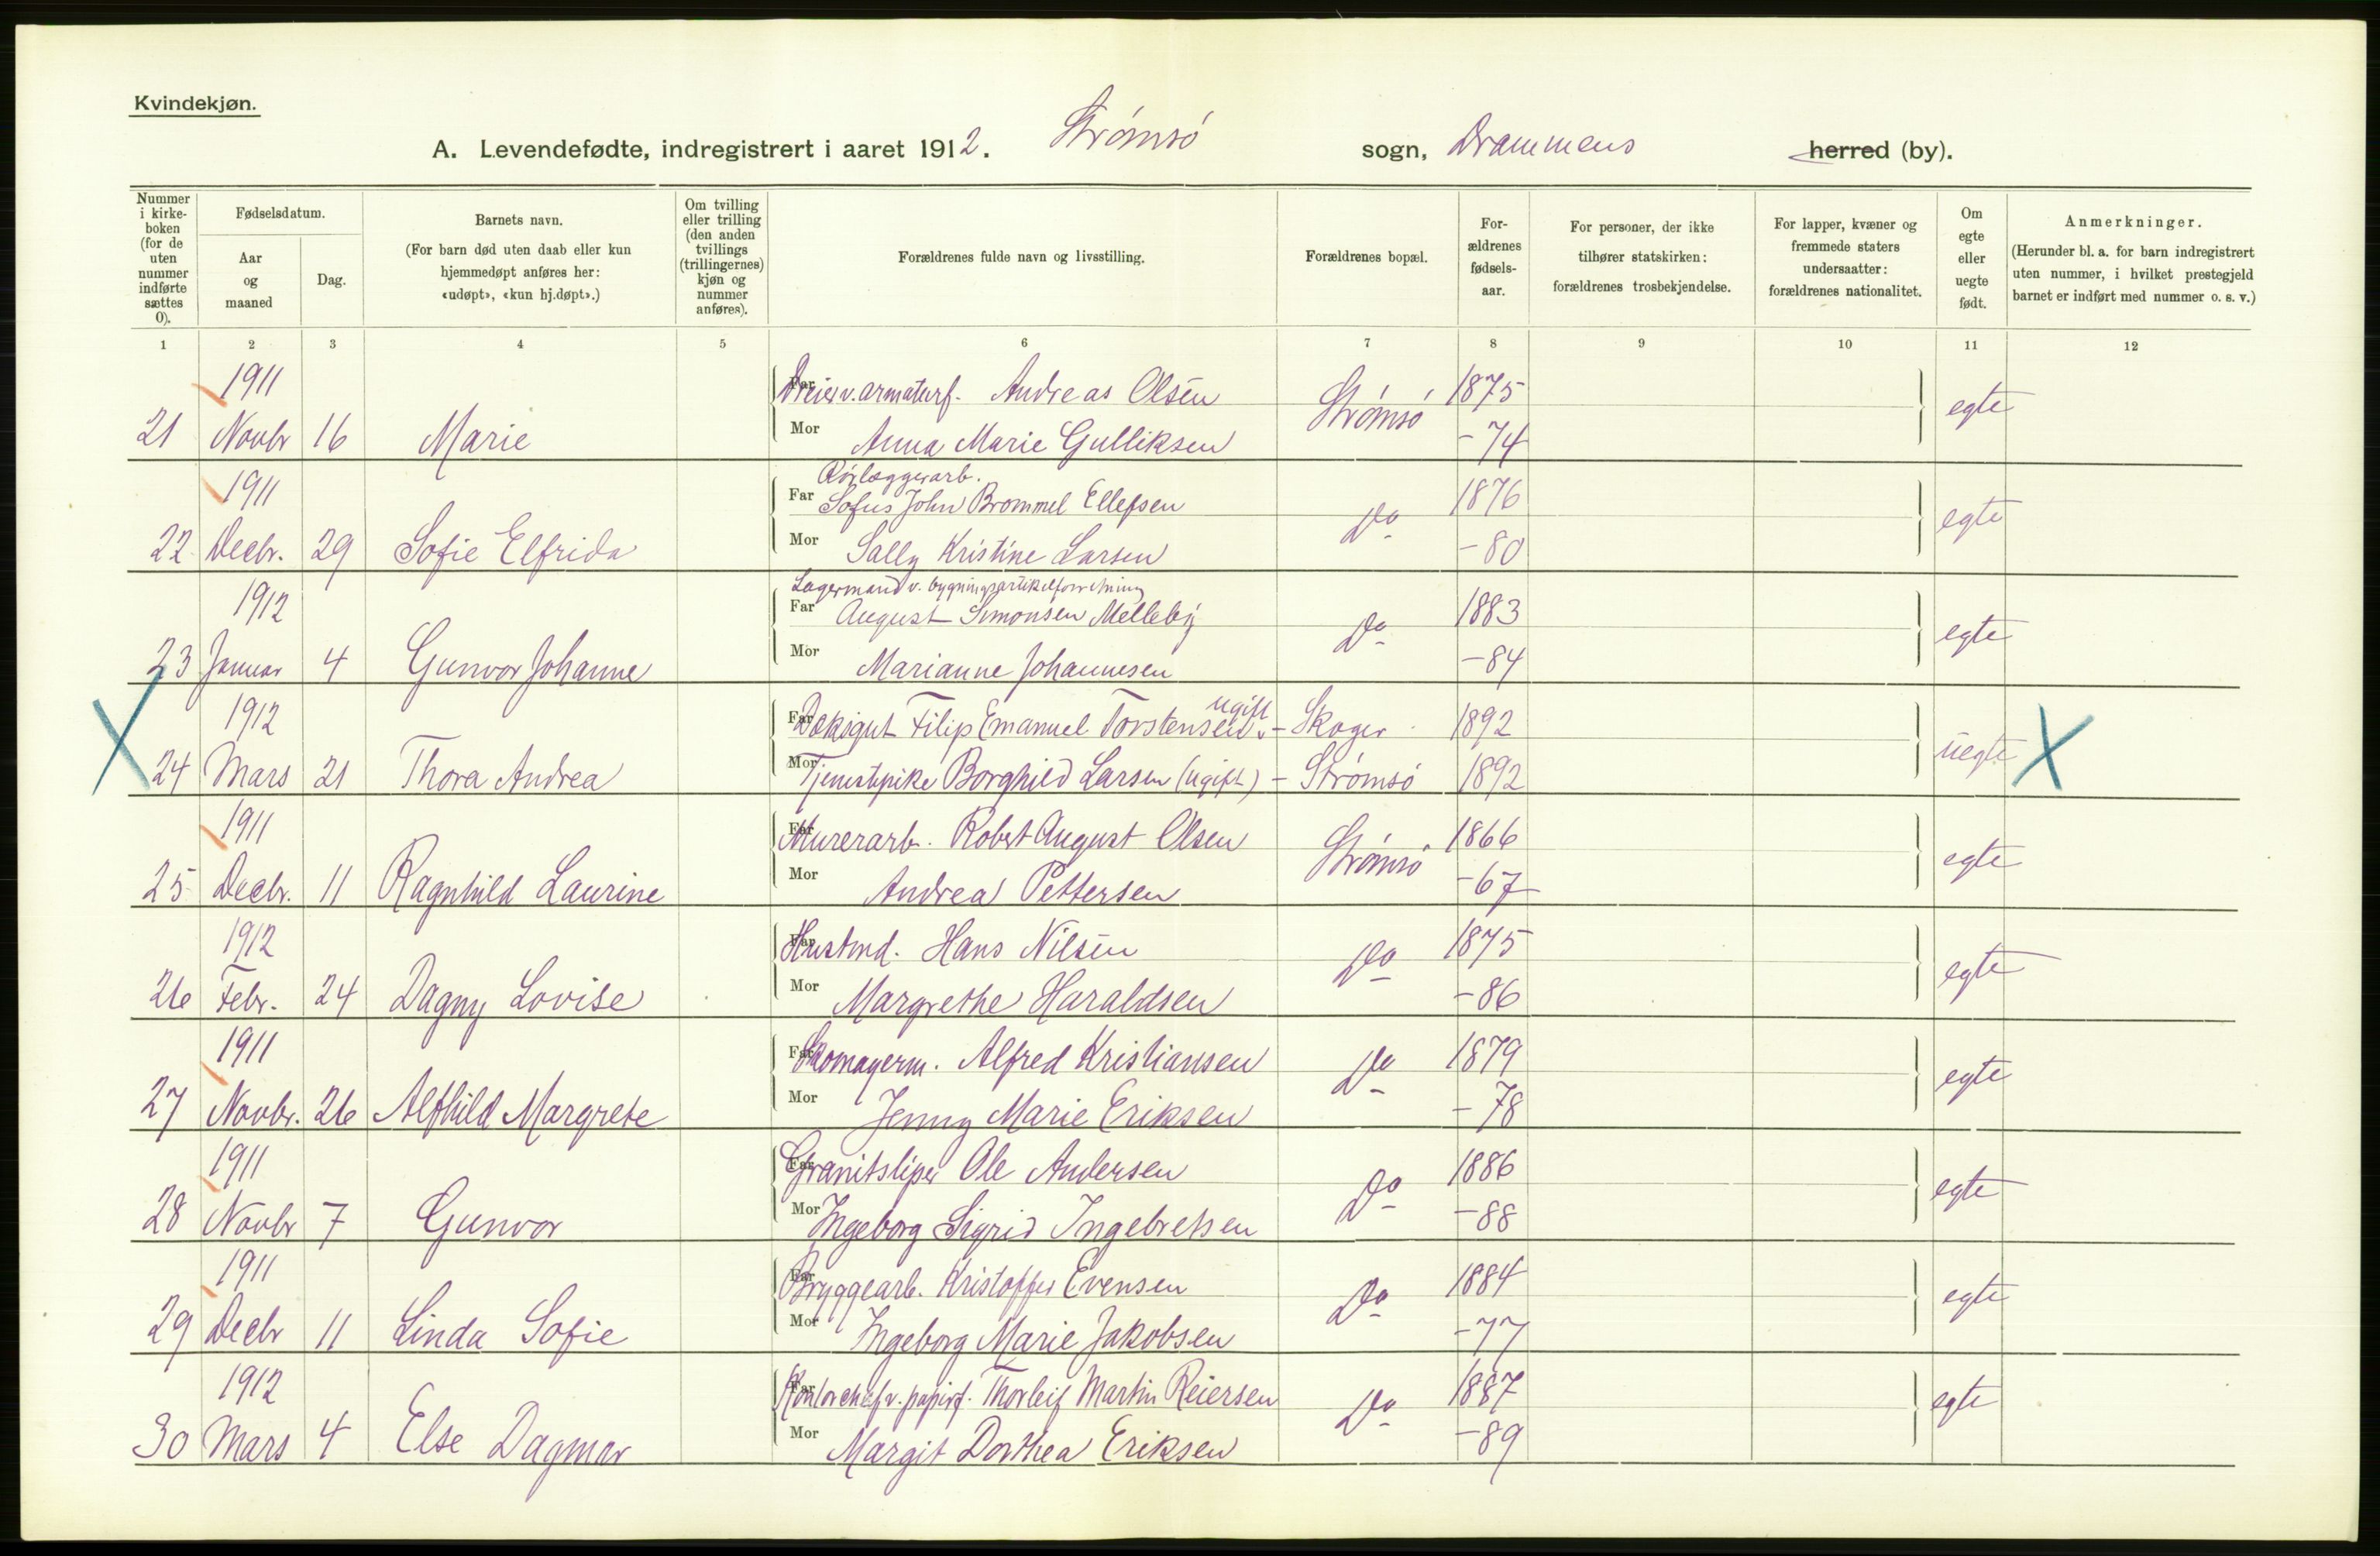 Kvindekjøn.
A. Levendefødte, indregistrert i aaret 1912. Strømsø sogn, Drammens herred (by).
Nummer i kirke-boken (for de uten nummer indførte sættes 0).
Fødselsdatum.
Aar og maaned
Dag.
Barnets navn.
(For barn død uten daab eller kun hjemmedøpt anføres her: «udøpt», «kun hj.døpt».)
Om tvilling eller trilling (den anden tvillings (trillingernes) kjøn og nummer anføres).
Forældrenes fulde navn og livsstilling.
Forældrenes bopæl.
For-ældrenes fødsels-aar.
For personer, der ikke tilhører statskirken: forældrenes trosbekjendelse.
For lapper, kvæner og fremmede staters undersaatter: forældrenes nationalitet.
Om egte eller uegte født.
Anmerkninger.
(Herunder bl. a. for barn indregistrert uten nummer, i hvilket prestegjeld barnet er indført med nummer o. s. v.)
1 2 3 4 5 6 7 8 9 10 11 12
1911 Far Dreier v. armaturf. Andreas Olsen Strømsø 1875 egte
21 Novbr 16 Marie Mor Anna Marie Gulliksen - 74
Rørlæggerarb.
1911 Far Sofus John Brommel Ellefsen Do 1876 egte
22 Decbr. 29 Sofie Elfrida Mor Sally Kristine Larsen - 80
Lagermand v. bygningsartikelforretning
1912 Far August Simonsen Melleby Do 1883 egte
23 Januar 4 Gunvor Johanne Mor Marianne Johannesen - 84
ugift
1912 Far Dæksgut Filip Emanuel Torstensen - Skoger 1892 uegte X
X 24 Mars 21 Thora Andrea Mor Tjenestepike Borghild Larsen (ugift) - Strømsø 1892
1911 Far Murerarb. Robert August Olsen Strømsø 1866 egte
25 Decbr. 11 Ragnhild Laurine Mor Andrea Pettersen - 67
1912 Far Hustmd. Hans Nilsen Do 1875 egte
26 Febr. 24 Dagny Lovise Mor Margrethe Haraldsen - 86
1911 Far Skomagerm. Alfred Kristiansen Do 1879 egte
27 Novbr. 26 Alfhild Margrete Mor Jenny Marie Eriksen - 78
1911 Far Granitsliper Ole Andersen Do 1886 egte
28 Novbr 7 Gunvor Mor Ingeborg Sigrid Ingebretsen - 88
1911 Far Bryggearb. Kristoffer Evensen Do 1884 egte
29 Decbr 11 Linda Sofie Mor Ingeborg Marie Jakobsen - 77
1912 Far Kontorchef v. papirf. Thorleif Martin Reiersen Do 1887 egte
30 Mars 4 Else Dagmar Mor Margit Dorthea Eriksen - 89